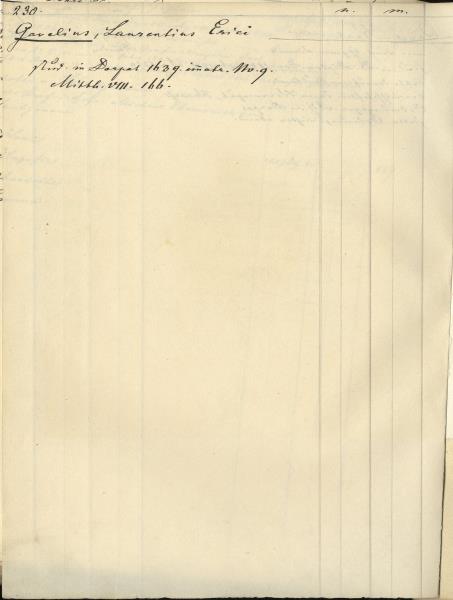 230. n. m.
Gavelius, Laurentius Erici
stud. in Dorpat 1639. im̅atr. No. 9.
Mitth. VIII. 166.